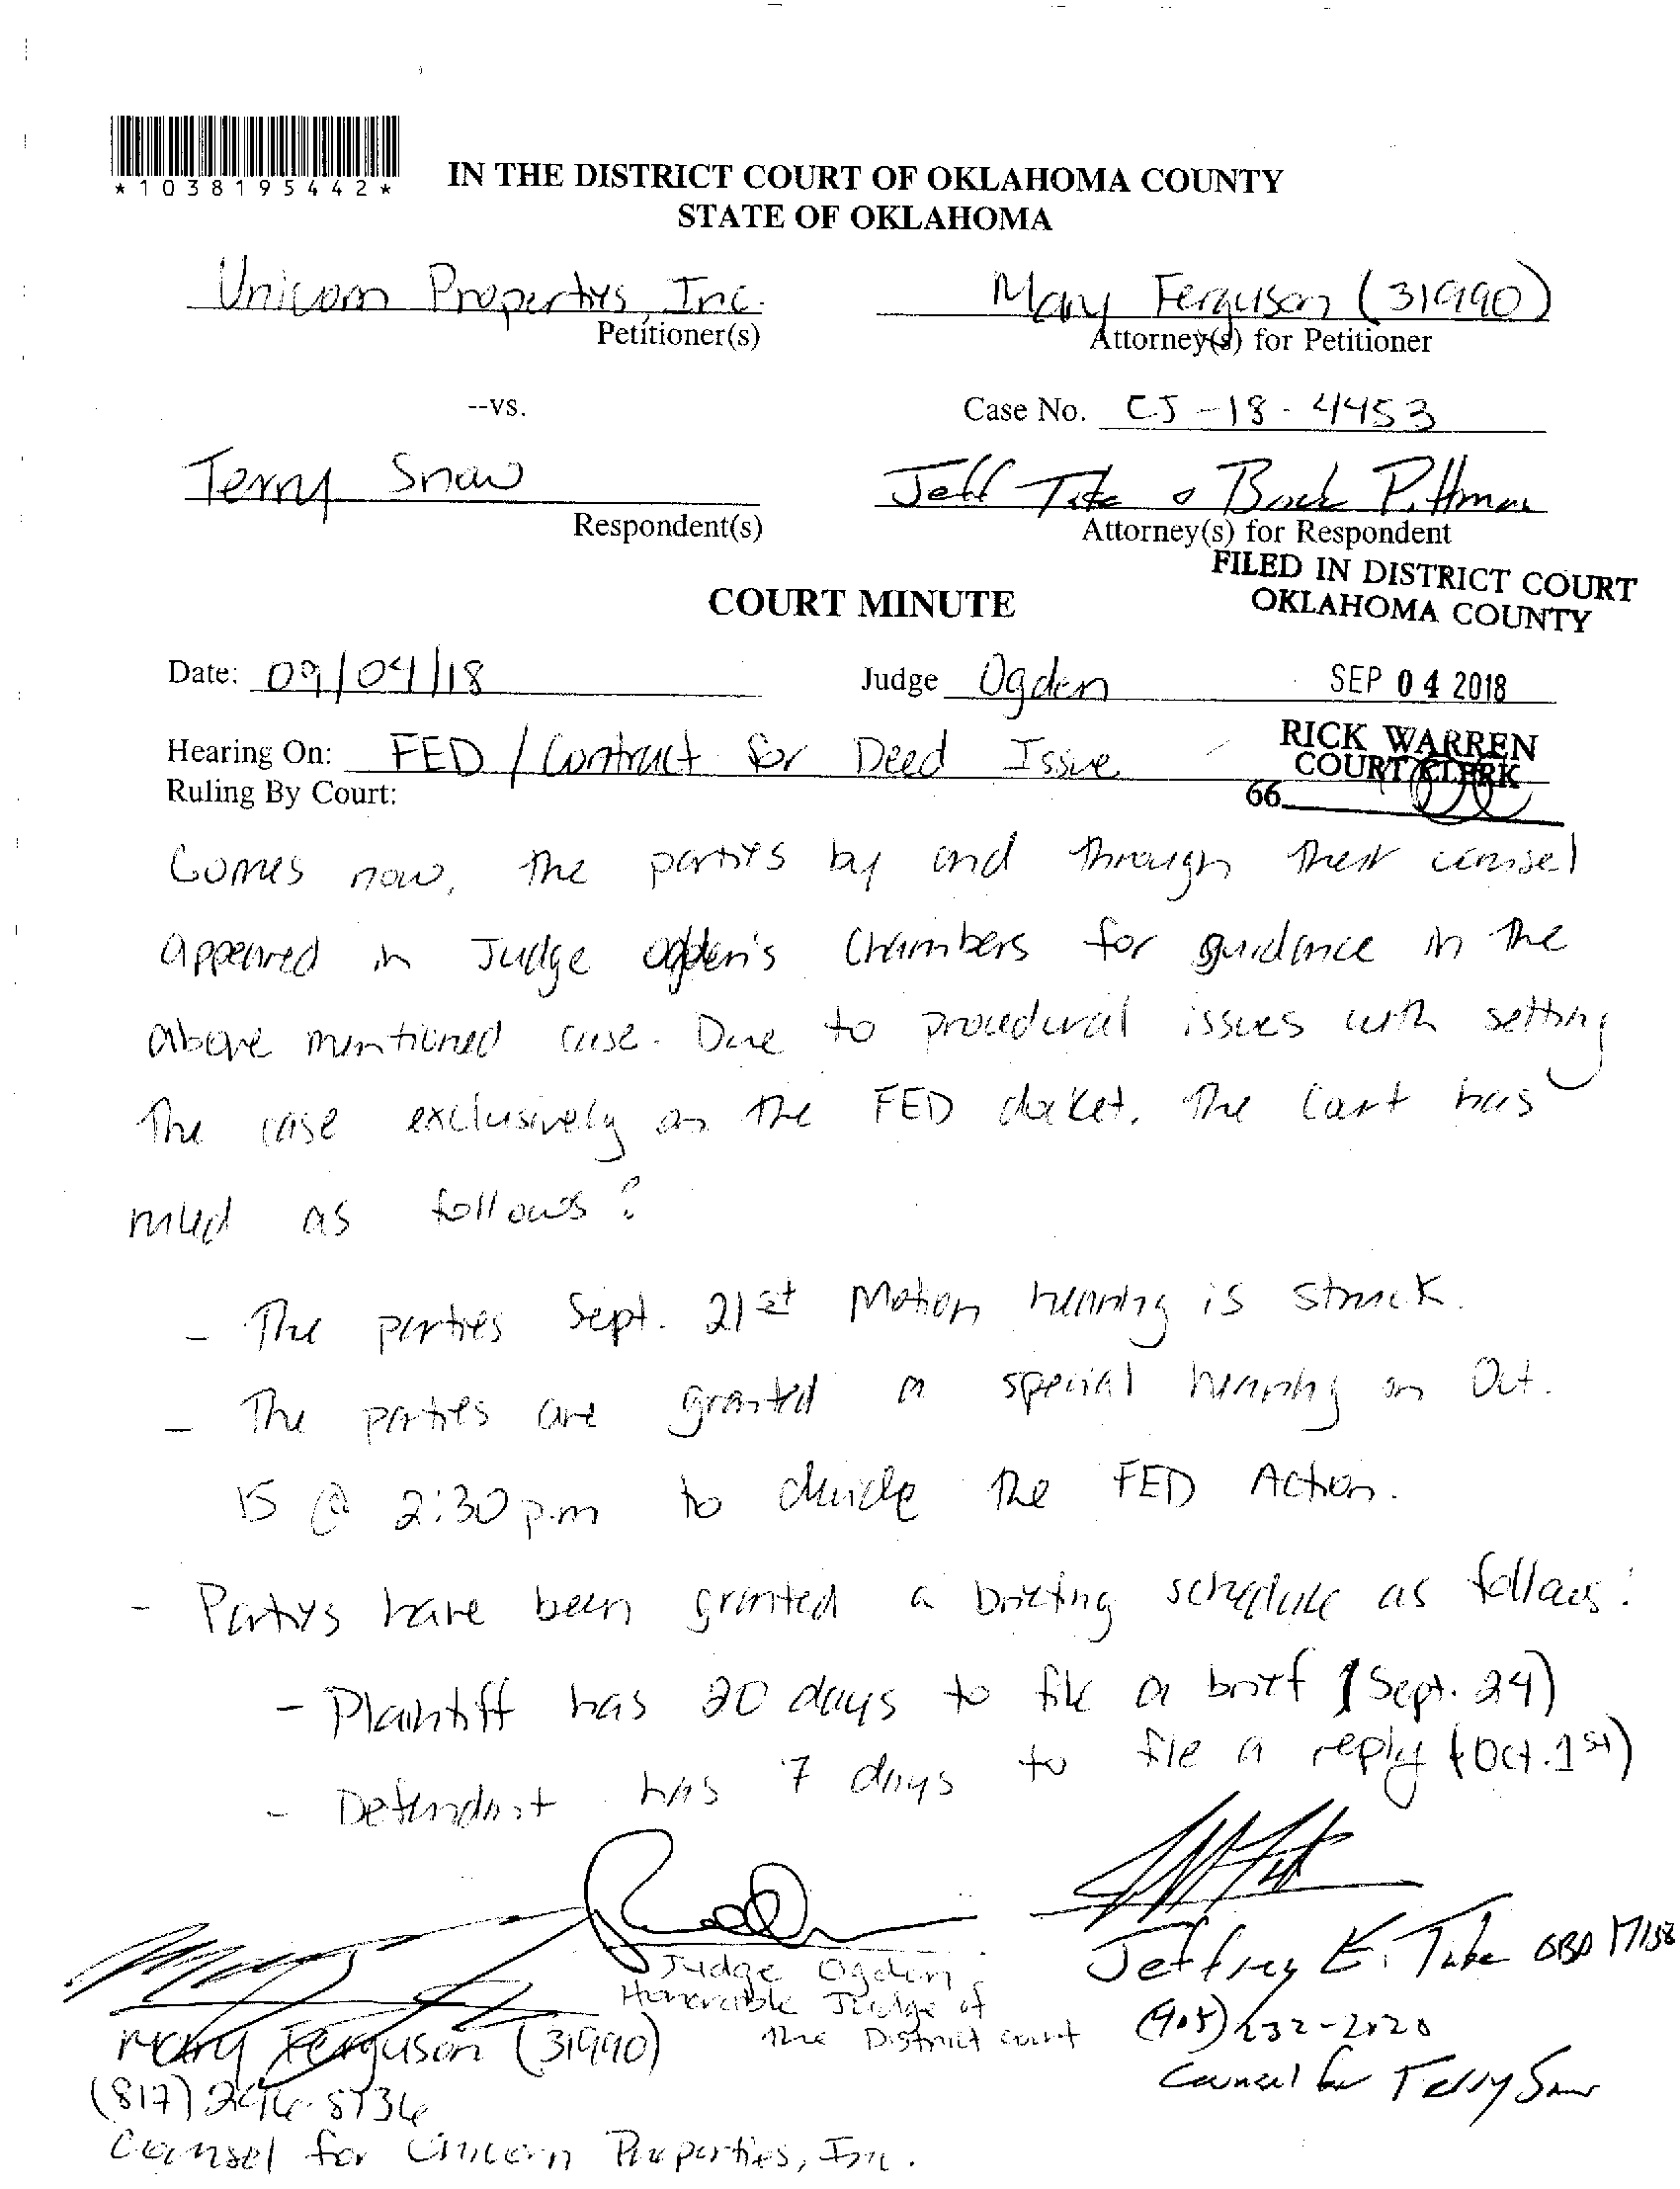 *1038195442*
IN THE DISTRICT COURT OF OKLAHOMA COUNTY
STATE OF OKLAHOMA
Unicorn Properties, Inc.
Petitioner(s)
Mary Ferguson (31990)
Attorney(s) for Petitioner
--vs.
Case No. CJ-18-4453
Terry Snow
Respondent(s)
Jeff Tate & Brock Pittman
Attorney(s) for Respondent
FILED IN DISTRICT COURT
OKLAHOMA COUNTY
COURT MINUTE
Date: 09/04/18
Judge Ogden
SEP 04 2018
Hearing On: FED / Contract for Deed Issue
RICK WARREN
COURT CLERK
Ruling By Court:
66
Comes now, the parties by and through their counsel
appeared in Judge Ogden's Chambers for guidance in the
above mentioned case. Due to procedural issues with setting
the case exclusively on the FED docket, the Court has
ruled as follows:
- The parties Sept. 21st Motion hearing is struck.
- The parties are granted a special hearing on Oct.
15 @ 2:30 p.m to decide the FED Action.
- Partys have been granted a briefing schedule as follows:
- Plaintiff has 20 days to file a brief (Sept. 24)
- Defendant has 7 days to file a reply (Oct. 1st)
Judge Ogden
Honorable Judge of
the District court
Jeffrey E. Tate OBA 17158
(405) 232-2020
Counsel for Terry Snow
Mary Ferguson (31990)
(817) 296-5736
Counsel for Unicorn Properties, Inc.